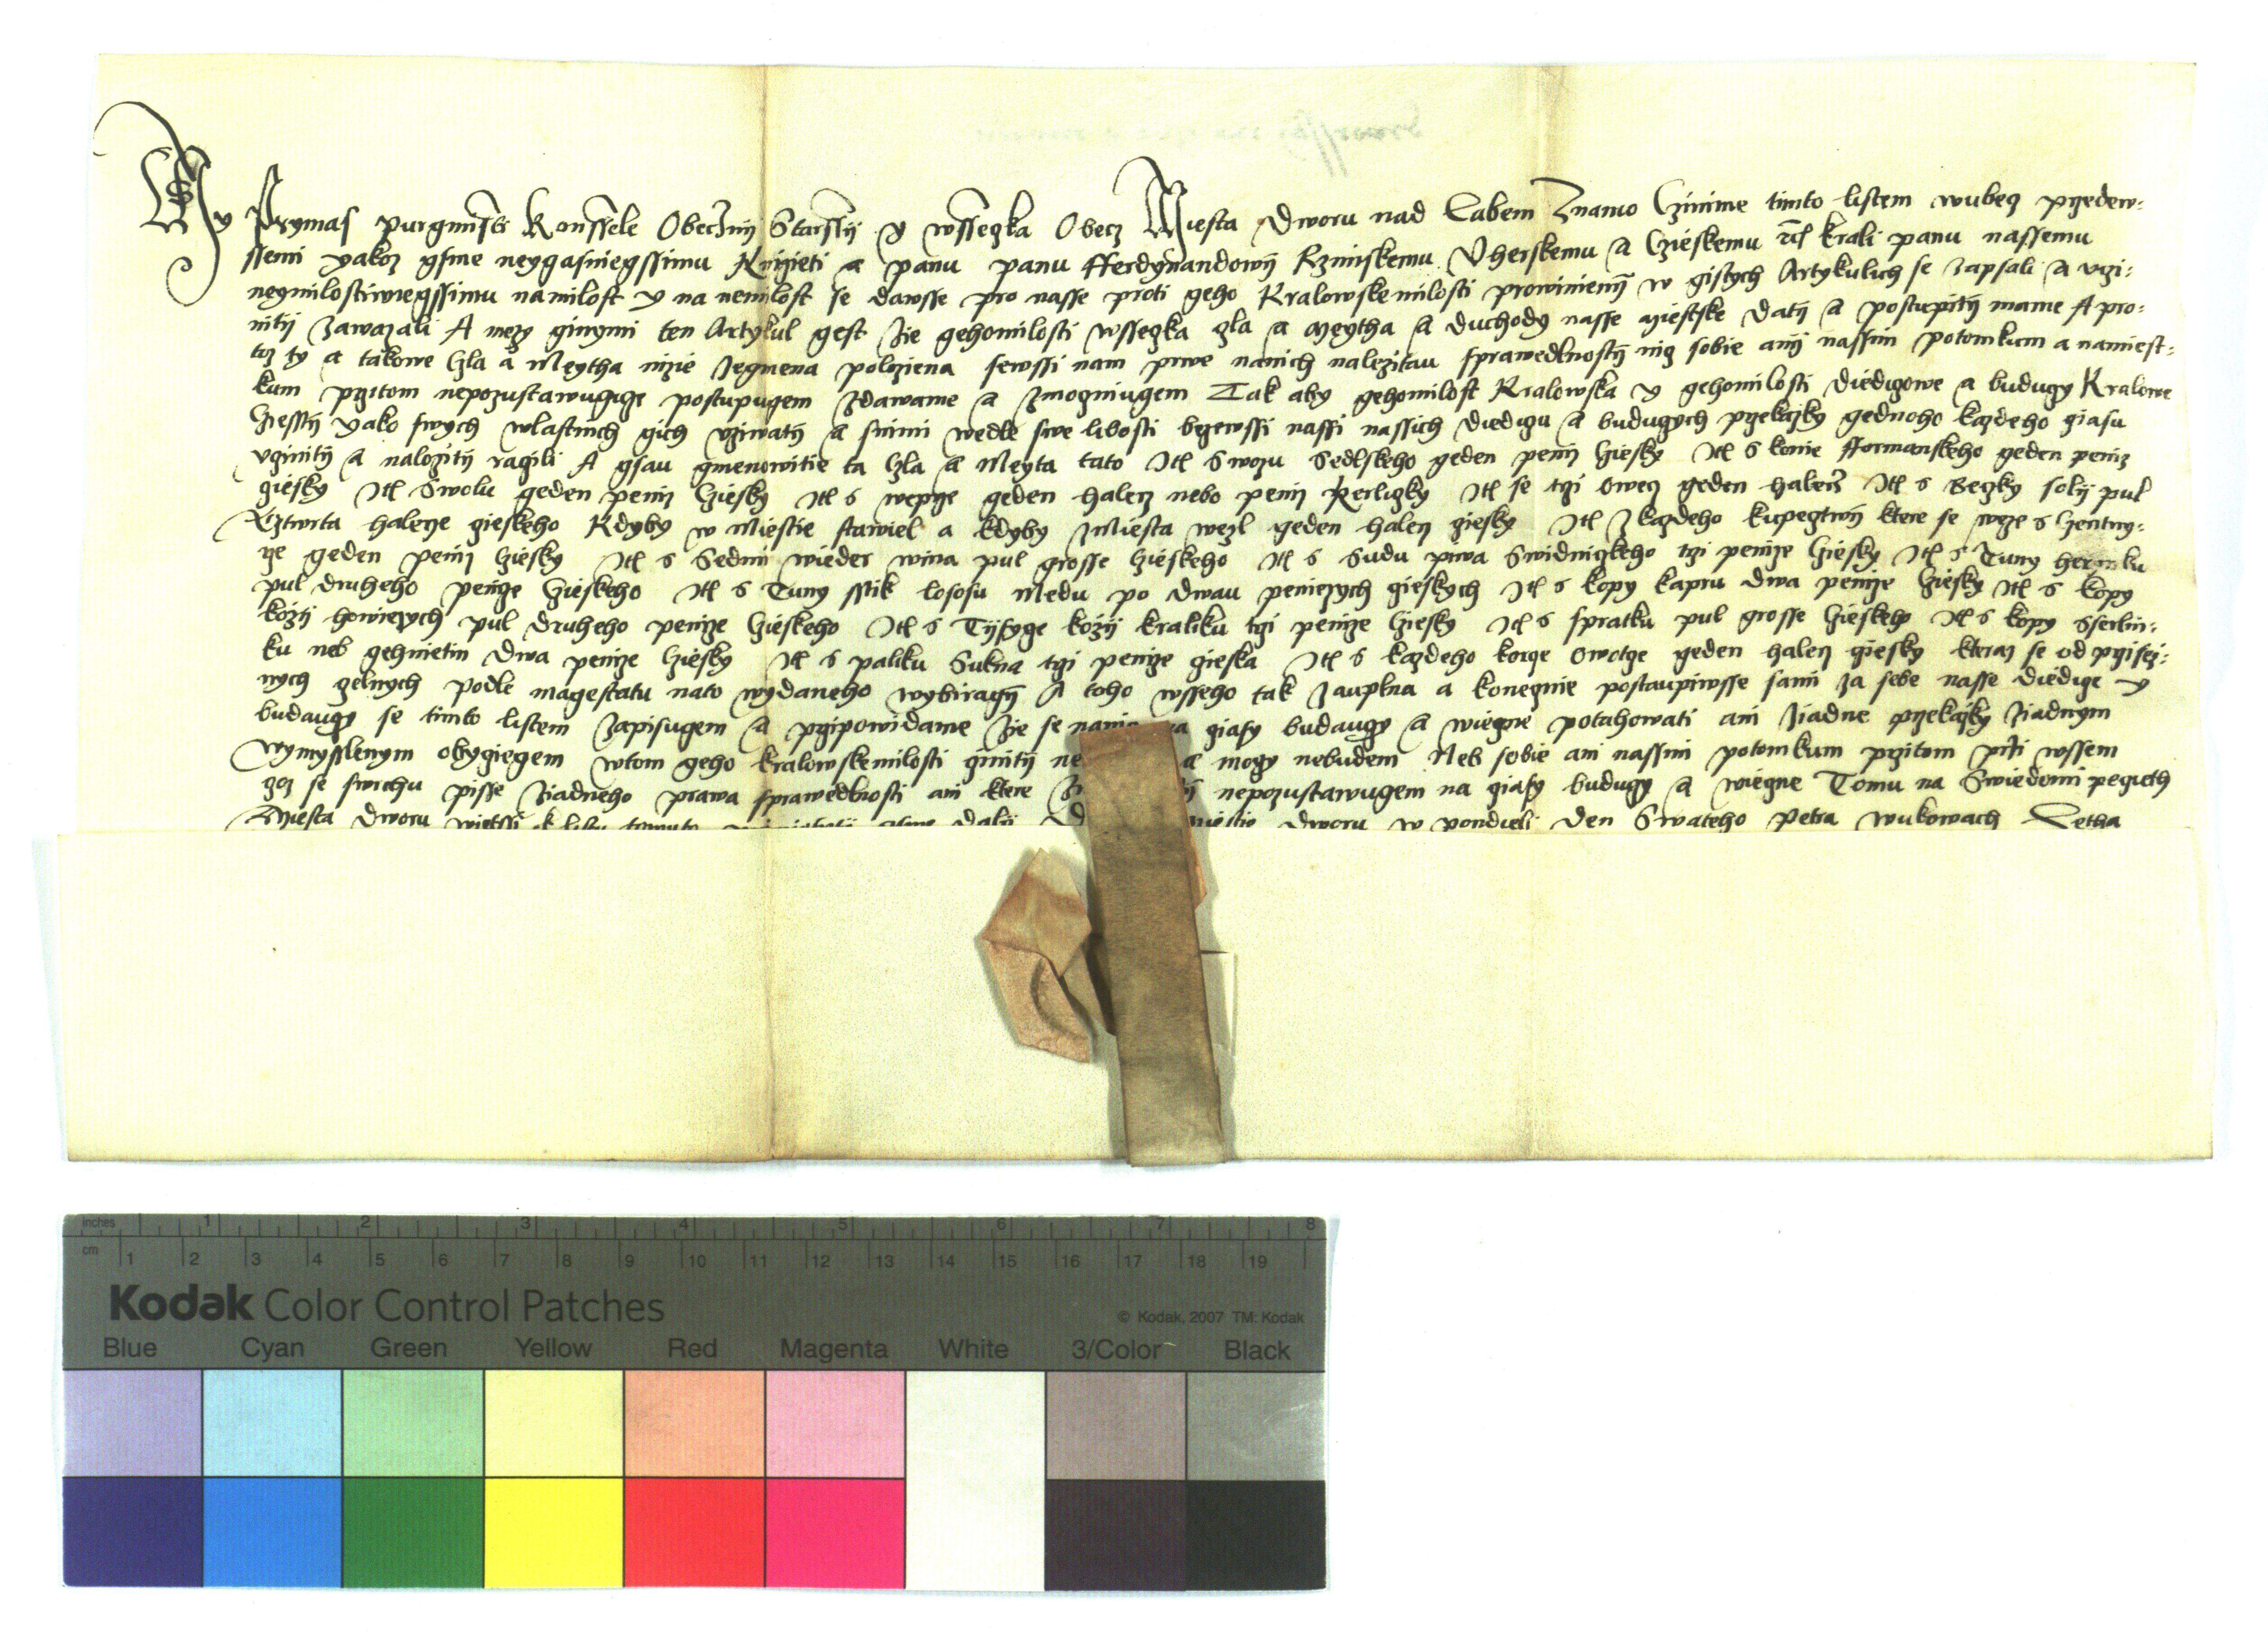 My Prymas purgmistr Konssele Obeczny Starssy y wsseczka Obecz Miesta Dworu nad Labem Znamo Czinime timto listem wubecz przedew-
ssemi yakoz gsme neygasniegssimu Knizieti a panu panu fferdynandowy Rzimskemu Vherskemu a Czieskemu etc krali panu nassemu
neymilostiwiegssimu na milost y na nemilost se dawsse pro nasse proti geho Kralowske milosti prowinieny w gistych Artykulich se zapsali a vczi-
nity zawazali A mezy ginymi ten Artykul gest Zie gehomilosti wssezka cla a Meytha a duchody nasse miestske daty a postupity mame A pro-
toz ty a takowe Cla a Meytha nizie Jegmena poloziena sewssi nam prwe nanich nalezitau sprawedlnosty nicz sobie any nassim potomkum a namiest-
kum przitom nepozustawugicze postupugem zdawame a zmoczniugem Tak aby gehomilost Kralowska y gehomilosti diediczowe a budauczy Kralowe
Cziessty yako swych wlastnich gich vziwaty a snimi wedle swe libosti bezewssi nassi nassich diediczu a buduczych przekazky gednoho kazdeho czasu
vczinity a nalozity raczili A gsau gmenowitie ta Cla a Meyta tato Itl S wozu Sedlskeho geden peniz Cziesky Itl s konie fformanskeho geden peniz
cziesky Itl S wolu geden peniz Cziesky Itl s weprze geden halerz nebo peniz Zerliczky Itl se trzi owecz geden halerz Itl s Beczky soly pul
Cztwrta halerze czieskeho Kdyby w Miestie stawiel a kdyby z Miesta wezl geden halerz cziesky Itl z kazdeho kupecztwy ktere se weze s Czentny-
rze geden peniz Cziesky Itl s Sedmi wieder wina pul grosse Czieskeho Itl s Sudu piwa Swidniczkeho trzi penize Cziesky Itl s Tuny herinku
pul druheho penize Czieskeho Itl s Tuny sstik lososu Medu po dwau peniezych czieskych Itl s kopy kapru dwa penize Cziesky Itl s kopy
kozy howiezych pul druheho penize Czieskeho Itl s Tysycze kozy kraliku trzi penize Cziesky Itl s spratku pul grosse Czieskeho Itl s kopy Sserbin-
ku neb gehnietin dwa penize Cziesky Itl s paliku Sukna trzi penize czieska Itl s kazdeho korcze owotcze geden halerz cziesky kteraz se od przisez-
nych czelnych podle magestatu nato wydaneho wybiragy A toho wsseho tak zauplna a konecznie postaupiwsse sami za sebe nasse diedicze y
budauczy se timto listem zapisugem a przipowidame Zie se czasy budauczy a wieczne potahowati ani ziadne przekazky ziadnym
wymysslenym obyczegem wtom geho kralowskemilosti cziniti moczy nebudem Neb sobie ani nassim potomkum przitom przi wssem
czoz se swrchu pisse ziadneho prawa sprawedlnosti ani ktere nepozustawugem na czasy buduczy a wieczne Tomu na Swiedomi peczieth
Miesta Dworu wietssi k listu tomuto Dworu w pondieli den Swateho Petra wokowach Letha
inches 1 2 3 4 5 6 7 8
cm 1 2 3 4 5 6 7 8 9 10 11 12 13 14 15 16 17 18 19
Kodak Color Control Patches © Kodak, 2007 TM: Kodak
Blue Cyan Green Yellow Red Magenta White 3/Color Black